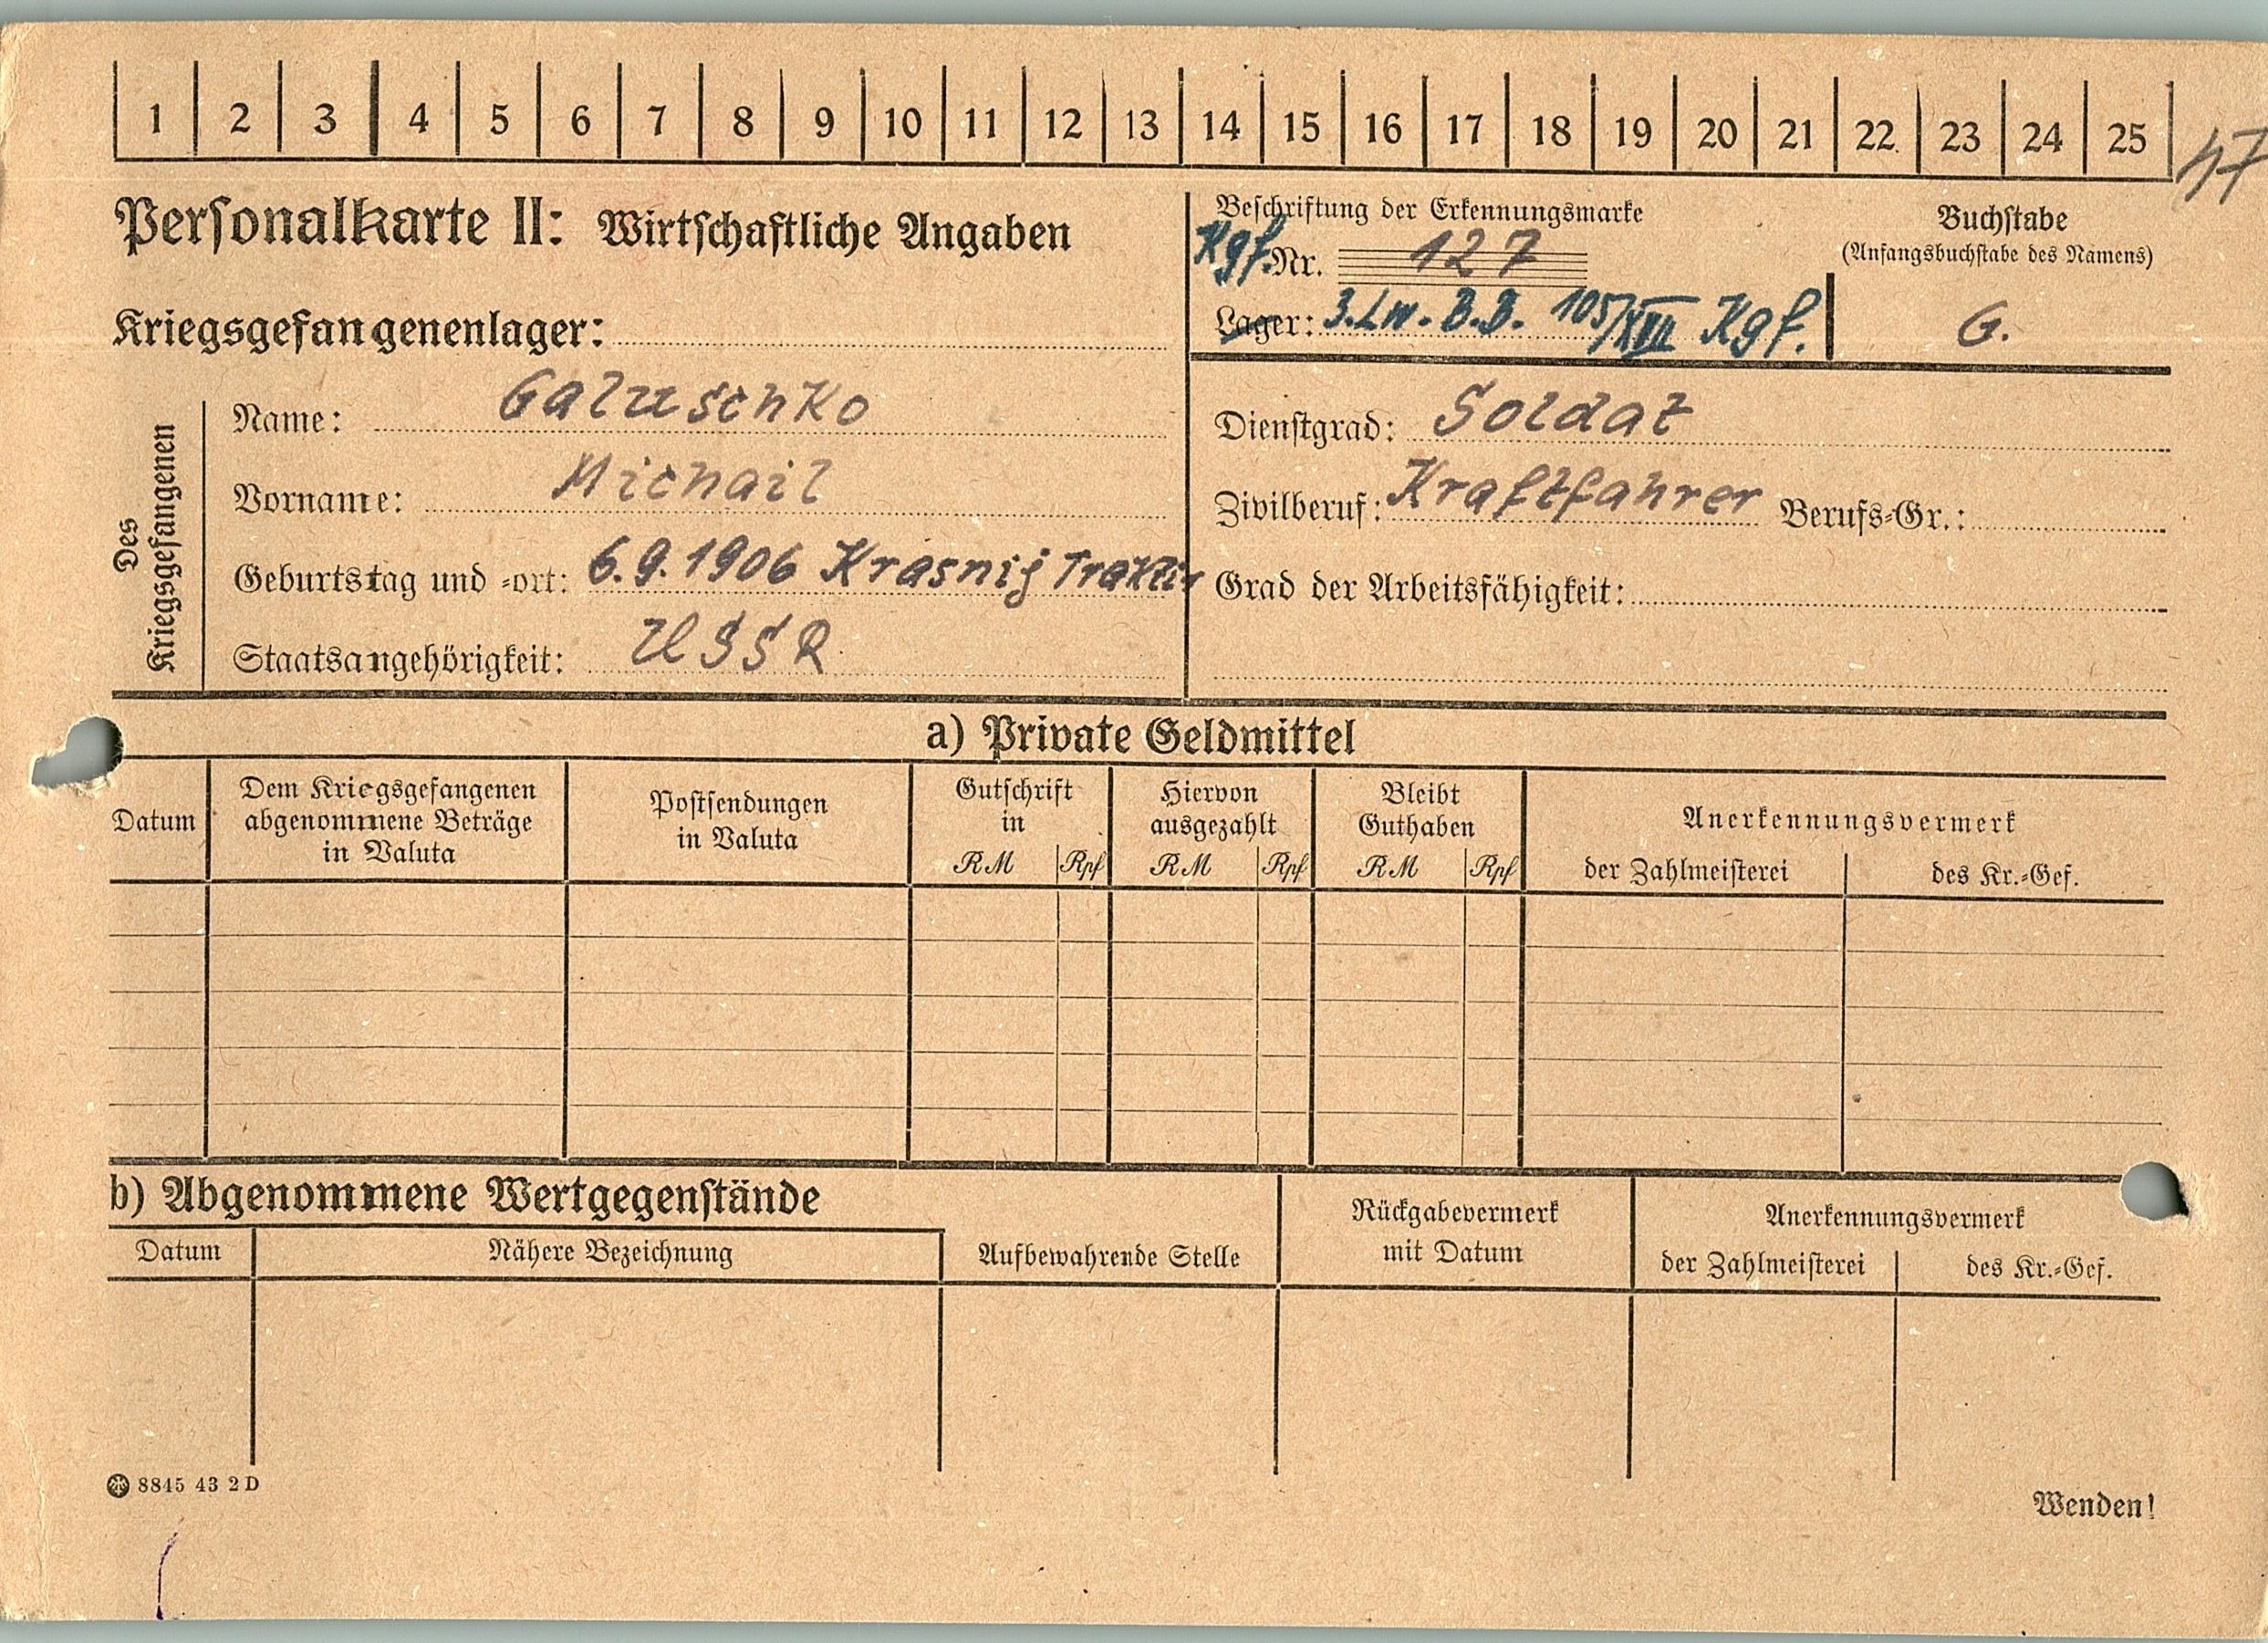 1 2 3 4 5 6 7 8 9 10 11 12 13 14 15 16 17 18 19 20 21 22 23 24 25
47
Personalkarte II: Wirtschaftliche Angaben
Beschriftung der Erkennungsmarke
Kgf. Nr. 127
Lager: 3. Lw.-B.B. 105/XVII Kgf.
Buchstabe
(Anfangsbuchstabe des Namens)
G.
Kriegsgefangenenlager:
Des Kriegsgefangenen
Name: Galuschko
Vorname: Michail
Geburtstag und -ort: 6.9.1906 Krasnij Traktir
Staatsangehörigkeit: USSR
Dienstgrad: Soldat
Zivilberuf: Kraftfahrer Berufs-Gr.:
Grad der Arbeitsfähigkeit:
a) Private Geldmittel
Datum
Dem Kriegsgefangenen
abgenommene Beträge
in Valuta
Postsendungen
in Valuta
Gutschrift
in
RM Rpf
Hiervon
ausgezahlt
RM Rpf
Bleibt
Guthaben
RM Rpf
Anerkennungsvermerk
der Zahlmeisterei des Kr.-Gef.
b) Abgenommene Wertgegenstände
Datum Nähere Bezeichnung
Aufbewahrende Stelle
Rückgabevermerk
mit Datum
Anerkennungsvermerk
der Zahlmeisterei des Kr.-Gef.
8845 43 2 D
Wenden!